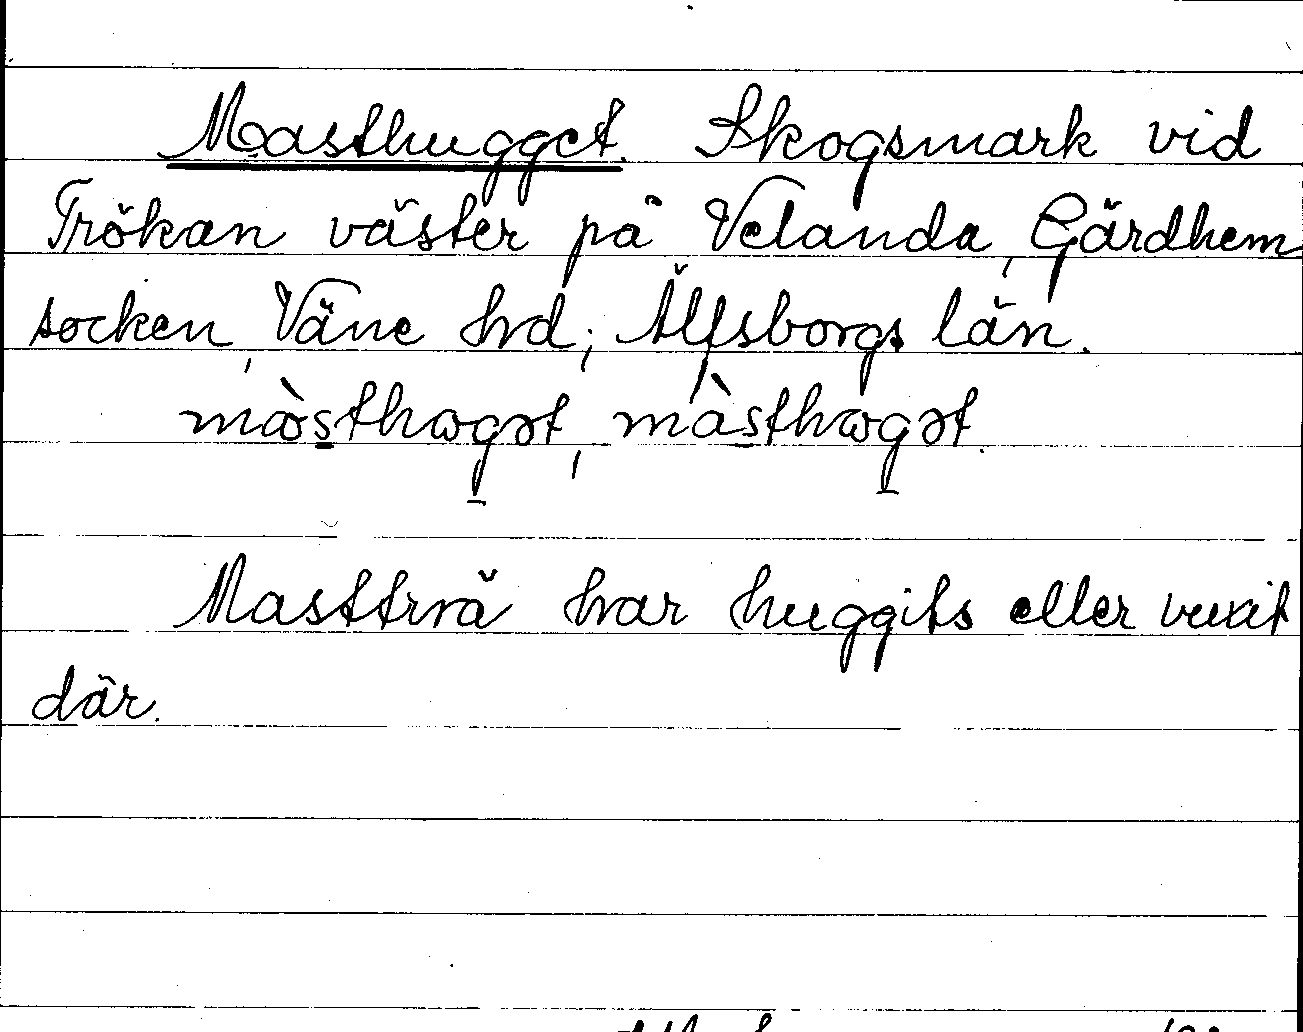 Masthugget. Skogsmark vid
Trökan väster på Velanda, Gärdhem
socken, Väne hrd, Älfsborgs län.
mòsthωgət, màsthωgət.
Mastträ har huggits eller vuxit
där.